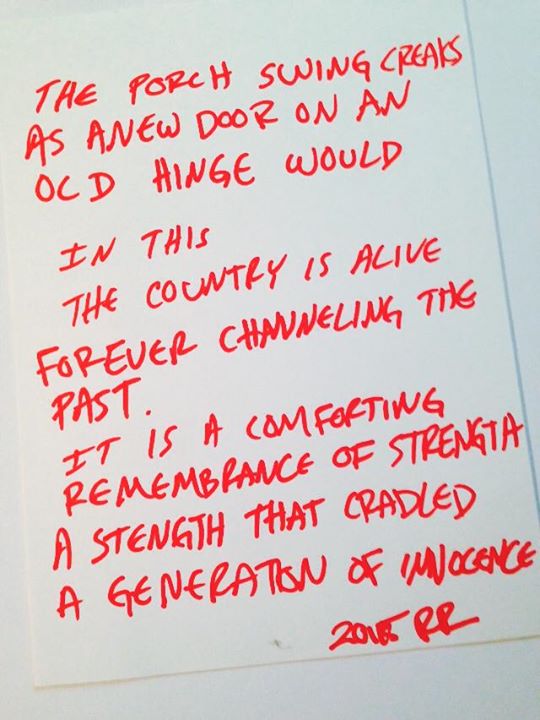 THE PORCH SWING CREAKS
AS A NEW DOOR ON AN
OLD HINGE WOULD
IN THIS
THE COUNTRY IS ALIVE
FOREVER CHANNELING THE
PAST.
IT IS A COMFORTING
REMEMBRANCE OF STRENGTH
A STENGTH THAT CRADLED
A GENERATION OF INNOCENCE
RR